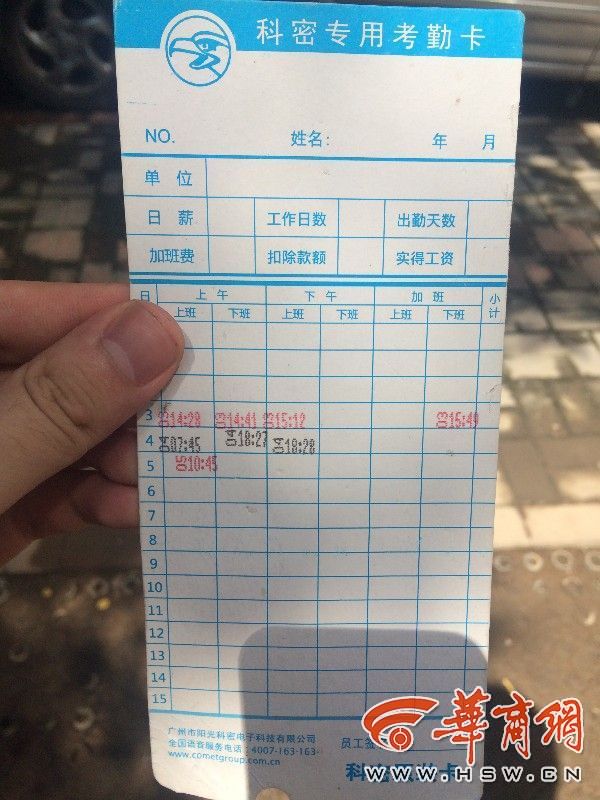 科密专用考勤卡
NO. 姓名: 年 月
单位
日薪 工作日数 出勤天数
加班费 扣除款额 实得工资
日 上午 下午 加班 小计
上班 下班 上班 下班 上班 下班
3 03 14:28 03 14:41 03 15:12 03 15:49
4 04 07:45 04 18:27 04 18:28
5 05 10:45
6
7
8
9
10
11
12
13
14
15
广州市阳光科密电子科技有限公司
全国语音服务电话:4007-163-163
www.cometgroup.com.cn
员工签
华商网
WWW.HSW.CN